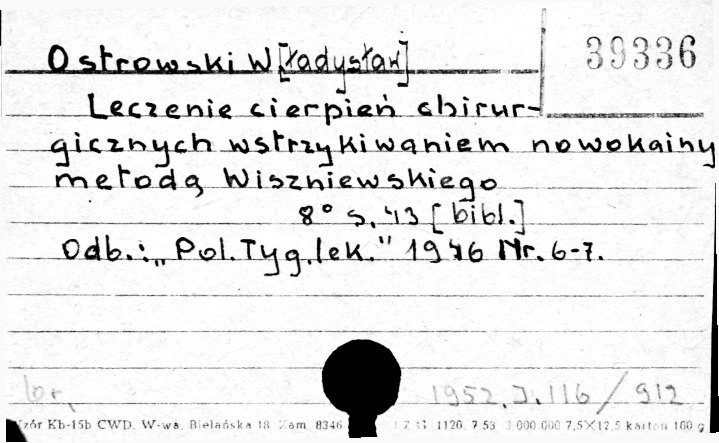 39336
Ostrowski W[ładysław]
Leczenie cierpień chirur-
gicznych wstrzykiwaniem nowokainy
metodą Wiszniewskiego
8° s. 43 [bibl.]
Odb.: „Pol.Tyg.lek." 1946 Nr. 6-7.
br.
1952.J.116/912
Wzór Kb-15b CWD. W-wa, Bielańska 18 Zam. 8346 1120, 7 53 3 000 000 7,5×12,5 karton 160 g